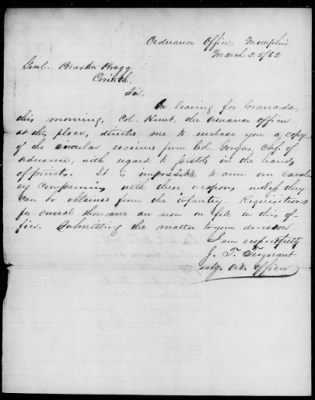 Ordnance Office, Memphis
March 25/62
Genl. Braxton Bragg
Corinth.
Sir.
On leaving for Granada,
this morning, Col. Hunt, the ordnance officer
at this place, directed me to enclose you a copy
of the circular received from Col. Gorgas, Chf. of
Ordnance, with regard to pistols in the hands
of privates. It is impossible to arm our caval
ry companies with these weapons unless they
can be obtained from the infantry. Requisitions
for several thousand are now on file in this of
fice. Submitting the matter to your decision
I am respectfully
J. T.
Ord. Officer